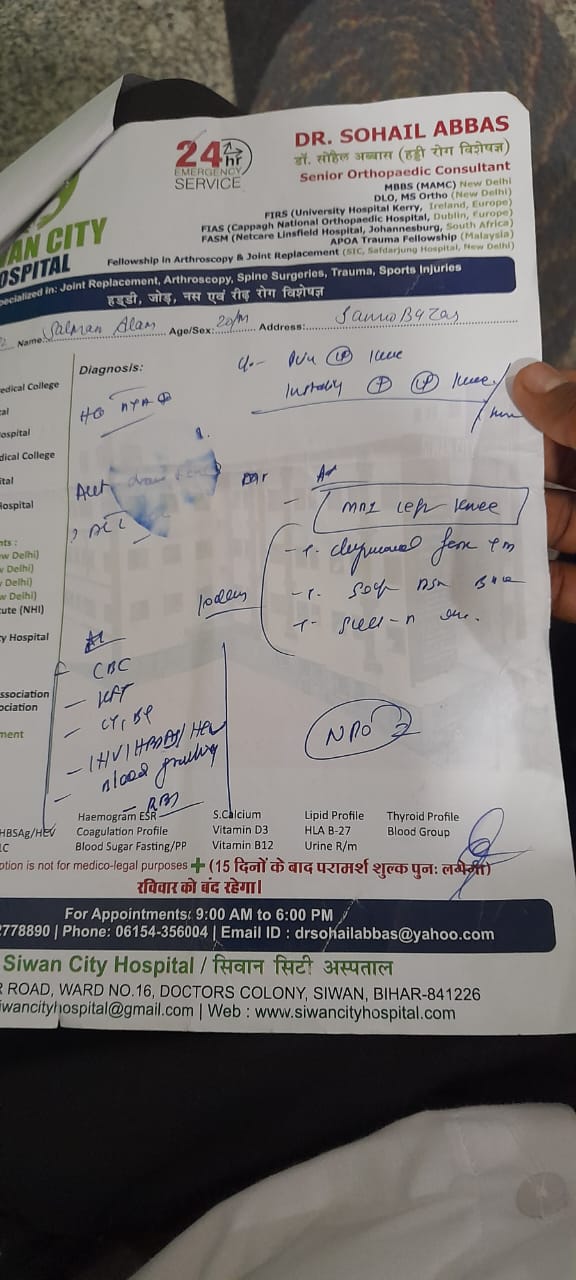 24 hr
EMERGENCY
SERVICE
AN CITY
OSPITAL
DR. SOHAIL ABBAS
डॉ. सोहैल अब्बास (हड्डी रोग विशेषज्ञ)
Senior Orthopaedic Consultant
MBBS (MAMC) New Delhi
DLO, MS Ortho (New Delhi)
FIRS (University Hospital Kerry, Ireland, Europe)
FIAS (Cappagh National Orthopaedic Hospital, Dublin, Europe)
FASM (Netcare Linsfield Hospital, Johannesburg, South Africa)
APOA Trauma Fellowship (Malaysia)
Fellowship in Arthroscopy & Joint Replacement (SIC, Safdarjung Hospital, New Delhi)
pecialized in: Joint Replacement, Arthroscopy, Spine Surgeries, Trauma, Sports Injuries
हड्डी, जोड़, नस एवं रीढ़ रोग विशेषज्ञ
Name Salman Alam Age/Sex: 20/M Address:
Diagnosis:
edical College
tal
ospital
dical College
ital
Hospital
nts :
w Delhi)
v Delhi)
Delhi)
w Delhi)
ute (NHI)
y Hospital
ssociation
ociation
ment
Knee
Knee
MRI Left Knee
10 days
CBC
KFT
CT, BT
Blood grouping
RBS
NPO
Haemogram ESR S.Calcium Lipid Profile Thyroid Profile
HBSAg/HEV Coagulation Profile Vitamin D3 HLA B-27 Blood Group
LC Blood Sugar Fasting/PP Vitamin B12 Urine R/m
ption is not for medico-legal purposes + (15 दिनों के बाद परामर्श शुल्क पुनः लगेगी)
रविवार को बंद रहेगा।
For Appointments: 9:00 AM to 6:00 PM
2778890 | Phone: 06154-356004 | Email ID : drsohailabbas@yahoo.com
Siwan City Hospital / सिवान सिटी अस्पताल
R ROAD, WARD NO.16, DOCTORS COLONY, SIWAN, BIHAR-841226
iwancityhospital@gmail.com | Web : www.siwancityhospital.com